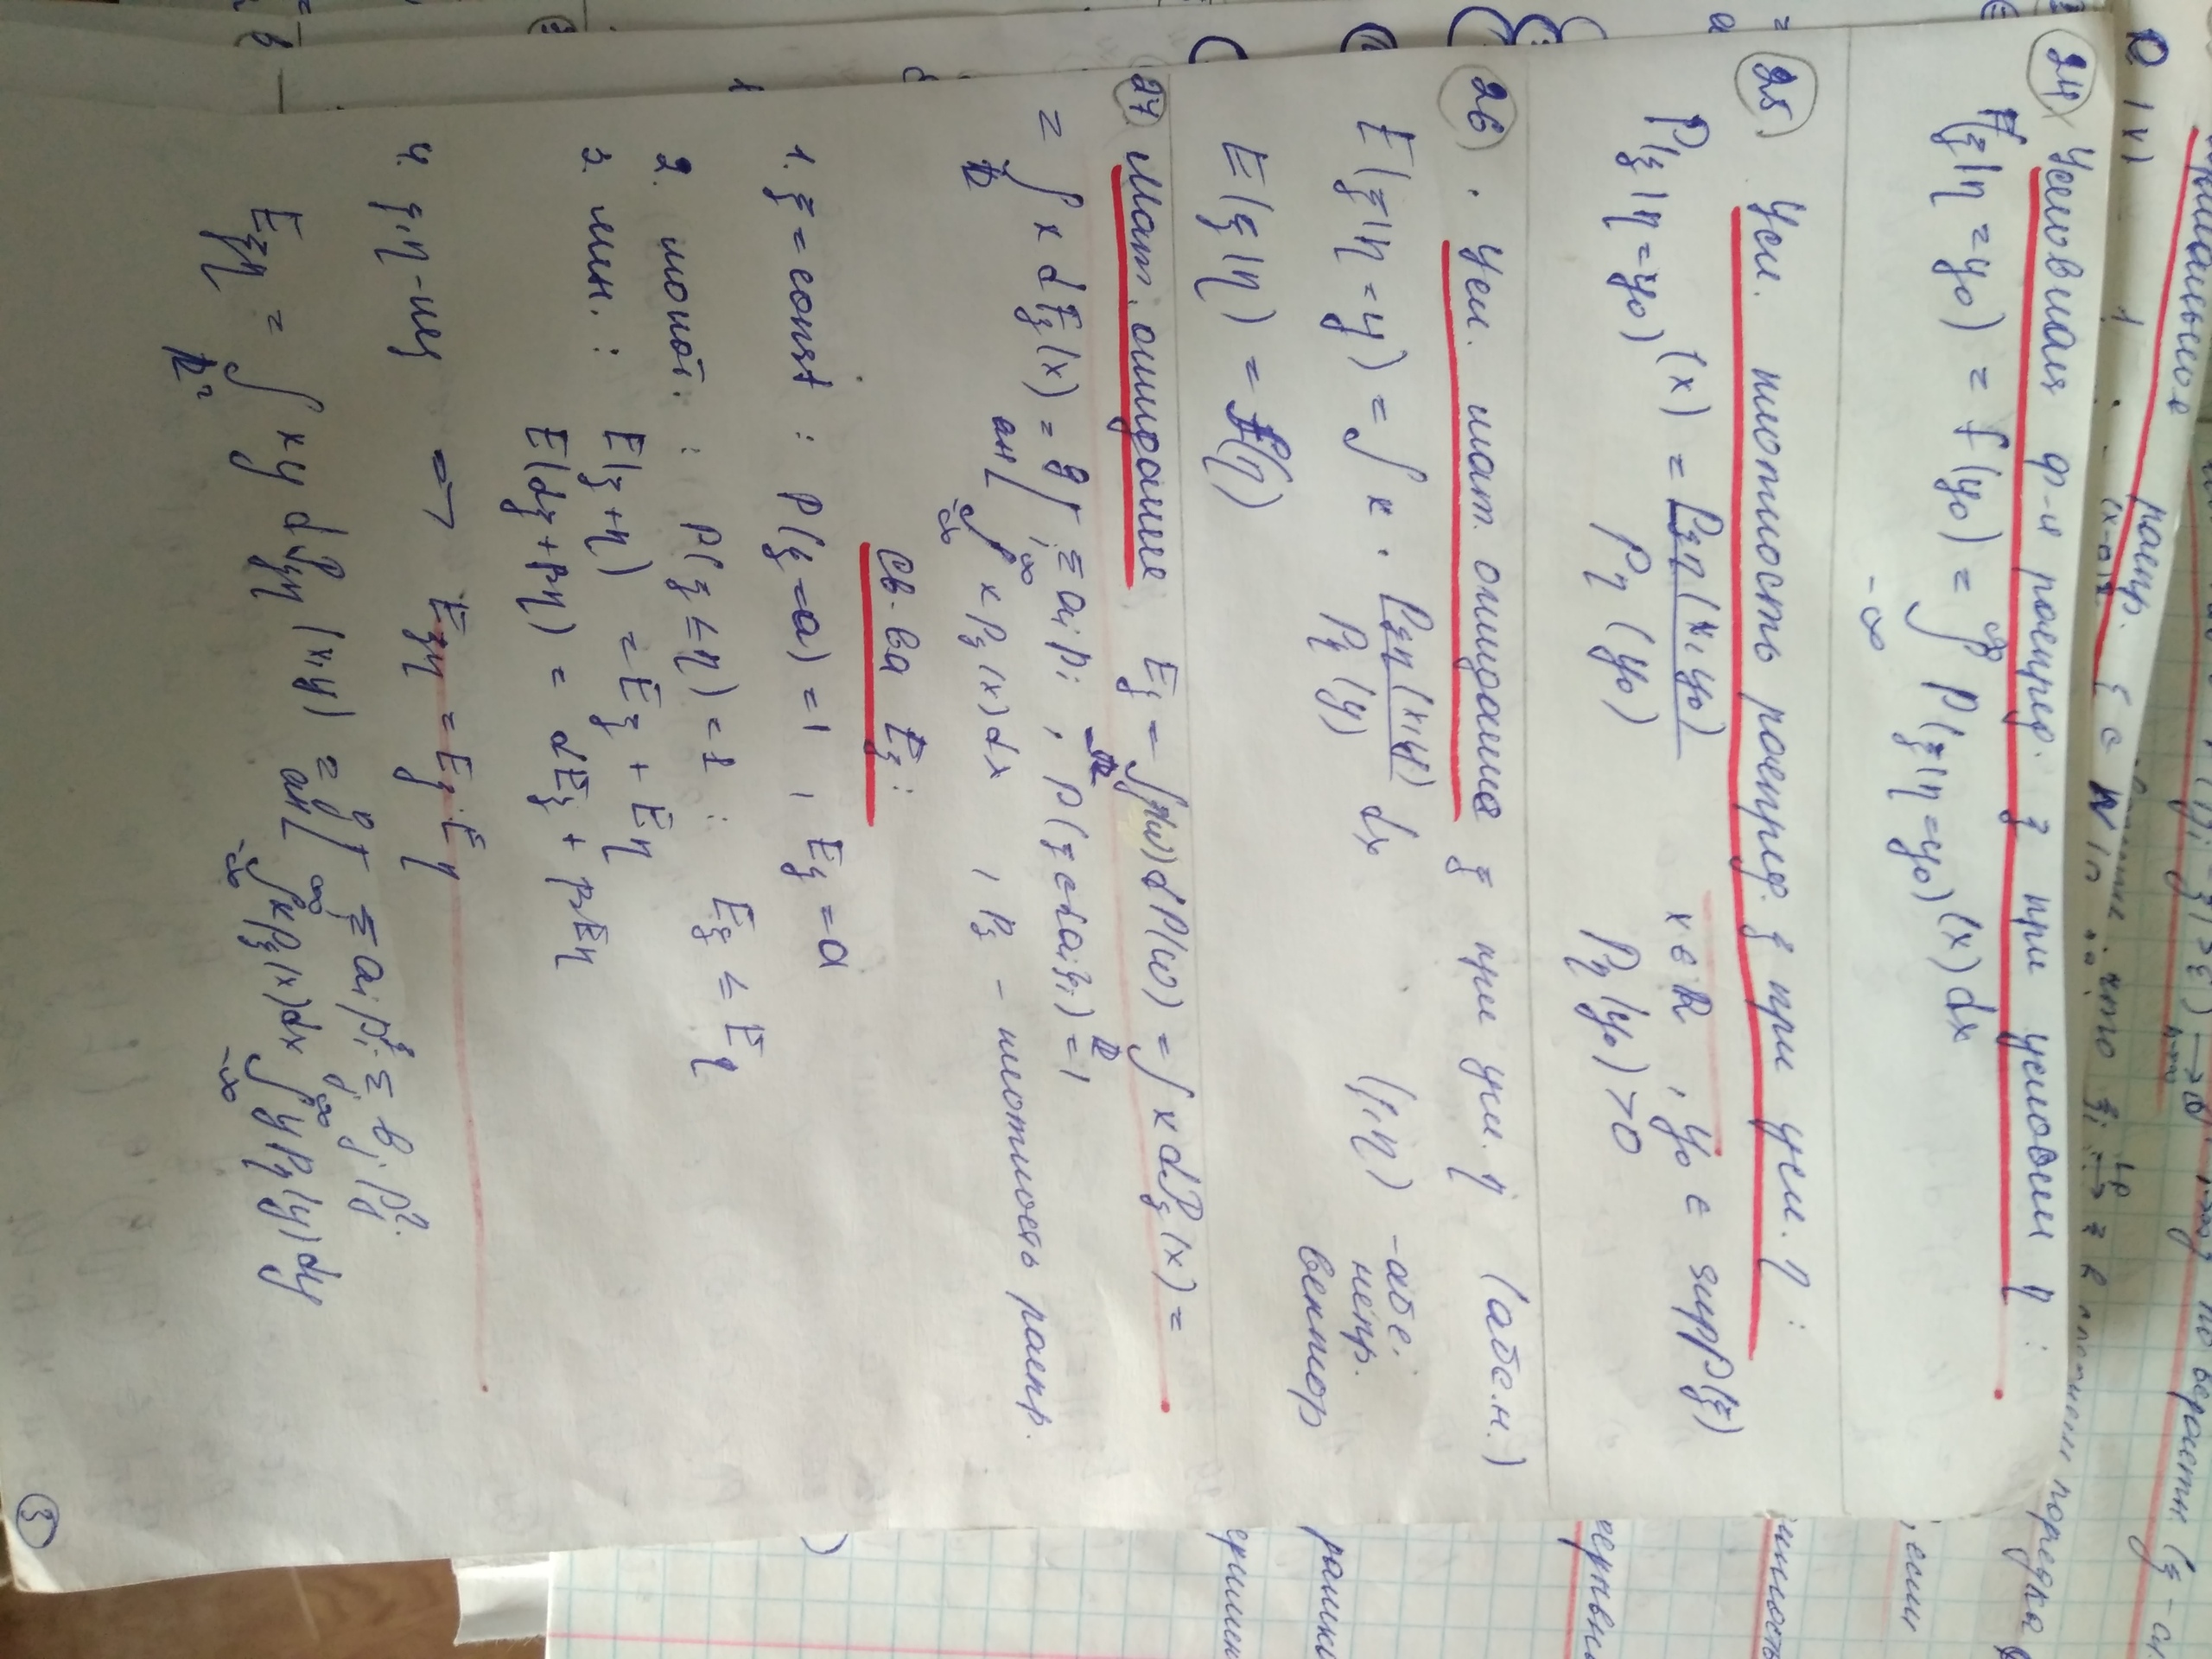 распр.
по вероятн. (ξ - сл.
что ξi →Lp ξ в
порядка
24 Условная ф-я распред. ξ при условии η :
F(ξ|η=y₀) = f(y₀) = ∫_{-∞}^{∞} P(ξ|η=y₀)(x)dx
, если
25. Усл. плотность распред. ξ при усл. η :
P(ξ|η=y₀)(x) = Pξη(x,y₀) / Pη(y₀) x∈ℝ , y₀ ∈ supp(ξ)
Pη(y₀)>0
26 . Усл. мат. ожидание ξ при усл. η (абс.н.)
E(ξ|η=y) = ∫ x · Pξη(x,y) / Pη(y) dx (ξ,η) - абс.
непр.
вектор
E(ξ|η) = f(η)
27. Мат. ожидание Eξ = ∫_ℝ ξ(ω)dP(ω) = ∫_ℝ x dPξ(x) =
= ∫_ℝ x dFξ(x) = g [ Σ_i ai pi , P(ξ∈{ai}i) = 1
ан [ ∫_{-∞}^{∞} x pξ(x)dx , pξ - плотность распр.
св-ва Eξ :
1. ξ = const : P(ξ=a) = 1 , Eξ = a
2. монот. : P(ξ≤η) = 1 : Eξ ≤ Eη
3. лин. : E(ξ+η) = Eξ + Eη
E(αξ+βη) = αEξ + βEη
4. ξ,η-нез ⇒ Eξη = Eξ·Eη
Eξη = ∫_{ℝ²} xy dPξη(x,y) = g [ Σ_i ai pi^ξ · Σ_j bj pj^η
ан [ ∫_{-∞}^{∞} x pξ(x)dx ∫_{-∞}^{∞} y pη(y)dy
3